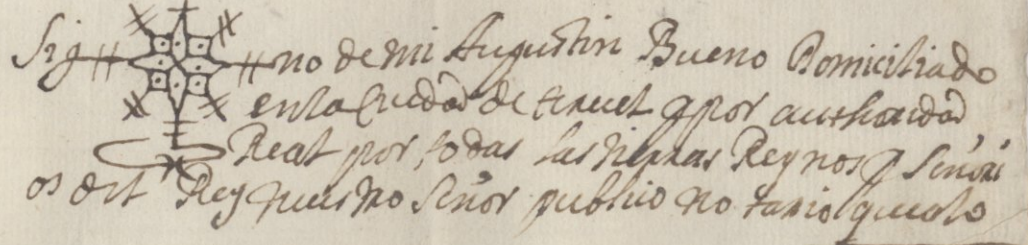 Sig no de mi Augustin Bueno Domiciliado
en la Ciudad de teruel y por authoridad
Real por todas las tierras Reynos y Señori
os del Rey nuestro Señor publico notario que a lo